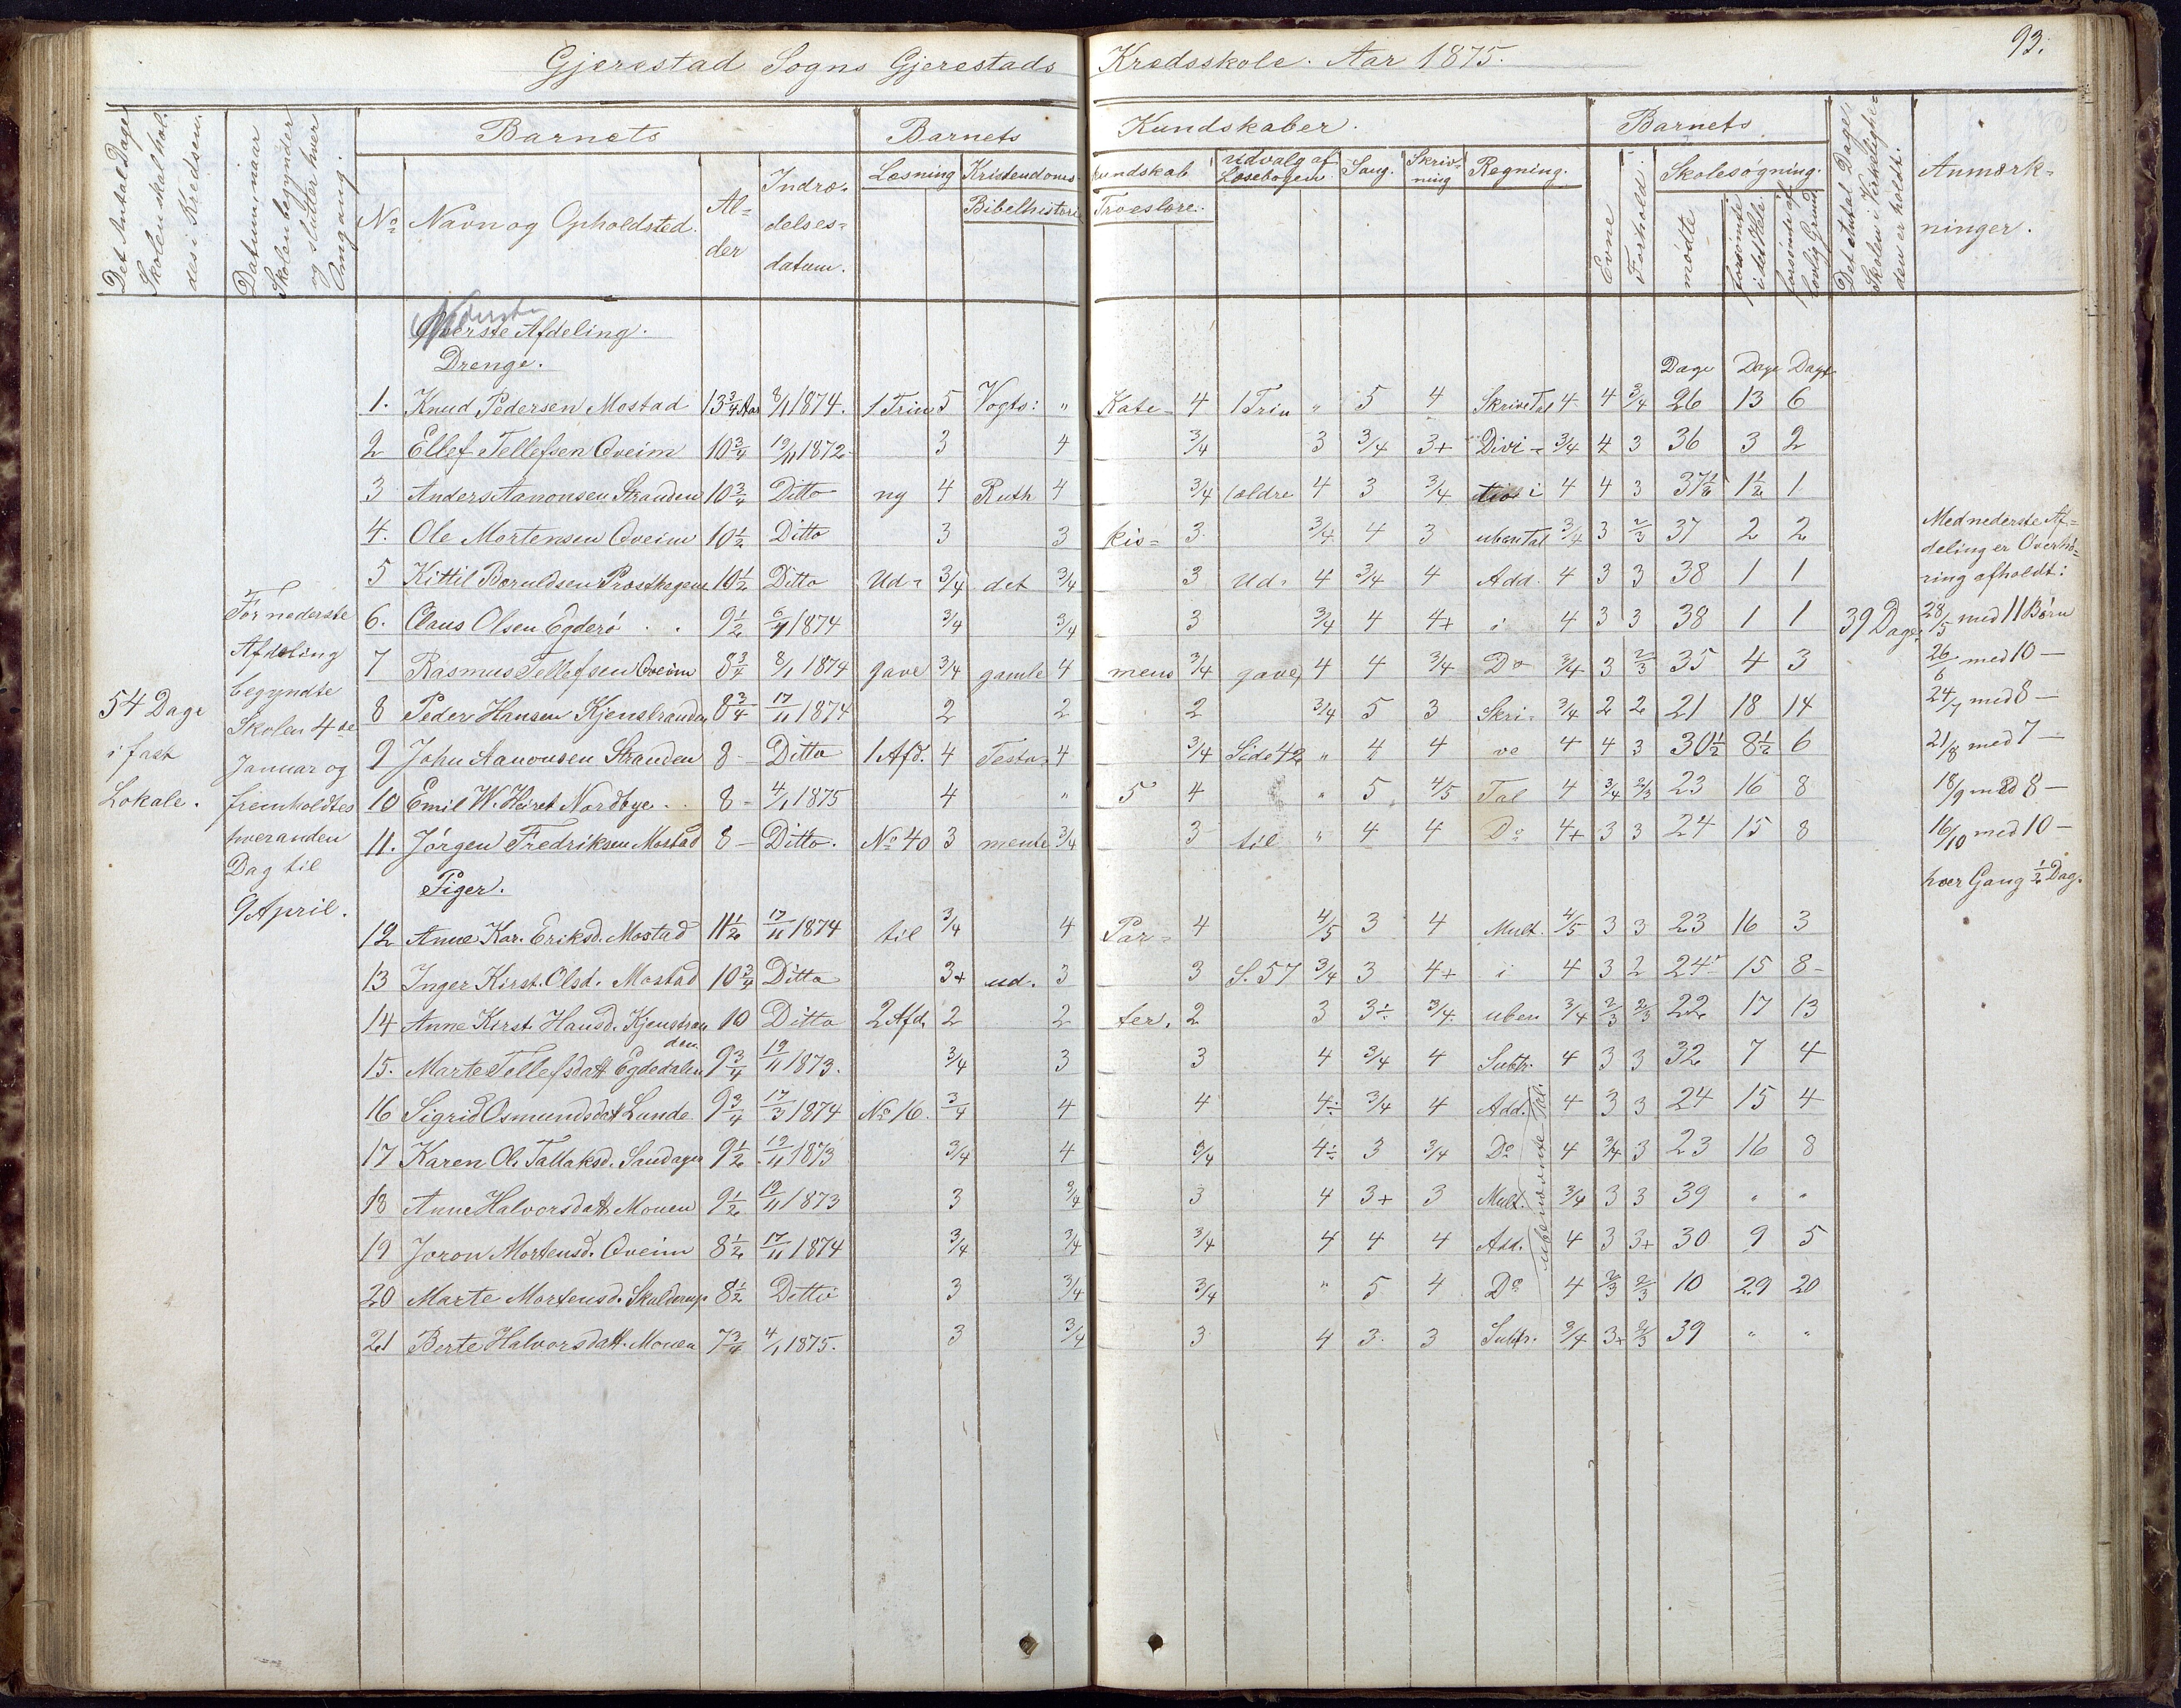 93.
Gjerestad Sogns Gjerestads Kredsskole. Aar 1875.
Det Antal Dage Skolen skal holdes i Kredsen.
Datum, naar Skolen begynder og slutter hver Omgang.
Barnets
No Navn og Opholdsted. Alder Indtrædelsesdatum.
Barnets Kundskaber.
Læsning Kristendomskundskab Udvalg af Læsebogen. Sang. Skrivning Regning.
Bibelhistorie Troeslære.
Barnets
Evne Forhold. Skolesøgning.
mødte forsømte i det Hele forsømte af lovlig Grund
Det Antal Dage Skolen i Virkeligheden er holdt.
Anmærkninger.
Nederste
Øverste Afdeling.
Drenge.
Dage Dage Dage
1. Knud Pedersen Mostad 13 3/4 Aar 8/11 1874. 1 Trin 5 Vogts: " Kate- 4 1 Trin " 5 4 Skrive Tal 4 4 3/4 26 13 6
2 Ellef Tellefsen Qveim 10 3/4 19/11 1872 3 4 3/4 3 3/4 3+ Divi- 3/4 4 3 36 3 2
3 Anders Aanonsen Stranden 10 3/4 Ditto ny 4 Ruth 4 3/4 (ældre 4 3 3/4 tion i 4 4 3 37 1/2 1 1/2 1
4. Ole Mortensen Qveim 10 1/2 Ditto 3 3 kis= 3 3/4 4 3 uben Tal 3/4 3 2/3 37 2 2
5 Kittil Boruldsen Prosthegene 10 1/2 Ditto Ud- 3/4 det 3/4 3 Ud- 4 3/4 4 Add. 4 3 3 38 1 1
6. Claus Olsen Egderö 9 1/2 6/7 1874 3/4 3/4 3 3/4 4 4+ i 4 3 3 38 1 1
7 Rasmus Tellefsen Qveim 8 3/4 8/1 1874 gave 3/4 gamle 4 mens 3/4 gave) 4 4 3/4 Do 3/4 3 2/3 35 4 3
8 Peder Hansen Kjenstranden 8 3/4 17/11 1874 2 2 2 3/4 5 3 Skri- 3/4 2 2 21 18 14
9 John Aanonsen Stranden 8 - Ditto 1 Afd. 4 Testa- 4 3/4 Side 42 " 4 4 ve 4 4 3 30 1/2 8 1/2 6
10 Emil W. Heiret Nordbye 8 - 4/1 1875 4 " 5 4 " 5 4/5 Tal 4 3/4 2/3 23 16 8
11. Jörgen Fredriksen Mostad 8 - Ditto. No 40 3 mente 3/4 3 til " 4 4 Do 4+ 3 3 24 15 8
Piger.
12 Anne Kar. Eriksd. Mostad 11 1/2 17/11 1874 til 3/4 4 Par- 4 4/5 3 4 Mult. 4/5 3 3 23 16 3
13 Inger Kirst. Olsd. Mostad 10 3/4 Ditto 3+ ud. 3 3 S. 57 3/4 3 4+ i 4 3 2 24 15 8
14 Anne Kirst. Hansd. Kjenstranden 10 Ditto 2 Afd. 2 2 ter. 2 3 3÷ 3/4 uben 3/4 2/3 2/3 22 17 13
15. Marte Tellefsdatt Egdedalen 9 3/4 19/11 1873. 3/4 3 3 4 3/4 4 Subtr. 4 3 3 32 7 4
16 Sigrid Osmundsdatt Lunde 9 3/4 17/3 1874 No 16. 3/4 4 4 4÷ 3/4 4 Add. 4 3 3 24 15 4
17 Karen Ol. Tallaksd. Sandager 9 1/2 19/11 1873 3/4 4 3/4 4÷ 3 3/4 Do 4 3/4 3 23 16 8
18 Anne Halvorsdatt Mouen 9 1/2 19/11 1873 3 3/4 3 4 3+ 3 Mult. 3/4 3 3 39 " "
19 Joron Mortensd. Qveim 8 1/2 17/11 1874 3/4 3/4 3/4 4 4 4 Add. 4 3 3+ 30 9 5
20 Marte Mortensd. Skaldtrup 8 1/2 Ditto 3 3/4 3/4 " 5 4 Do 4 2/3 2/3 10 29 20
21 Berte Halvorsdatt. Mouen 7 3/4 4/1 1875. 3 3/4 3 4 3 3 Subtr. 3/4 3+ 2/3 39 " "
54 Dage
i fast
Lokale.
For nederste
Afdeling
begyndte
Skolen 4de
Januar og
fremholdtes
hveranden
Dag til
9 April.
39 Dage
Med nederste Af=
deling er Overhø=
ring afholdt:
28/5 med 11 Børn
26/6 med 10 —
24/7 med 8 —
21/8 med 7 —
18/9 med 8 —
16/10 med 10 —
hver Gang 1/2 Dag.